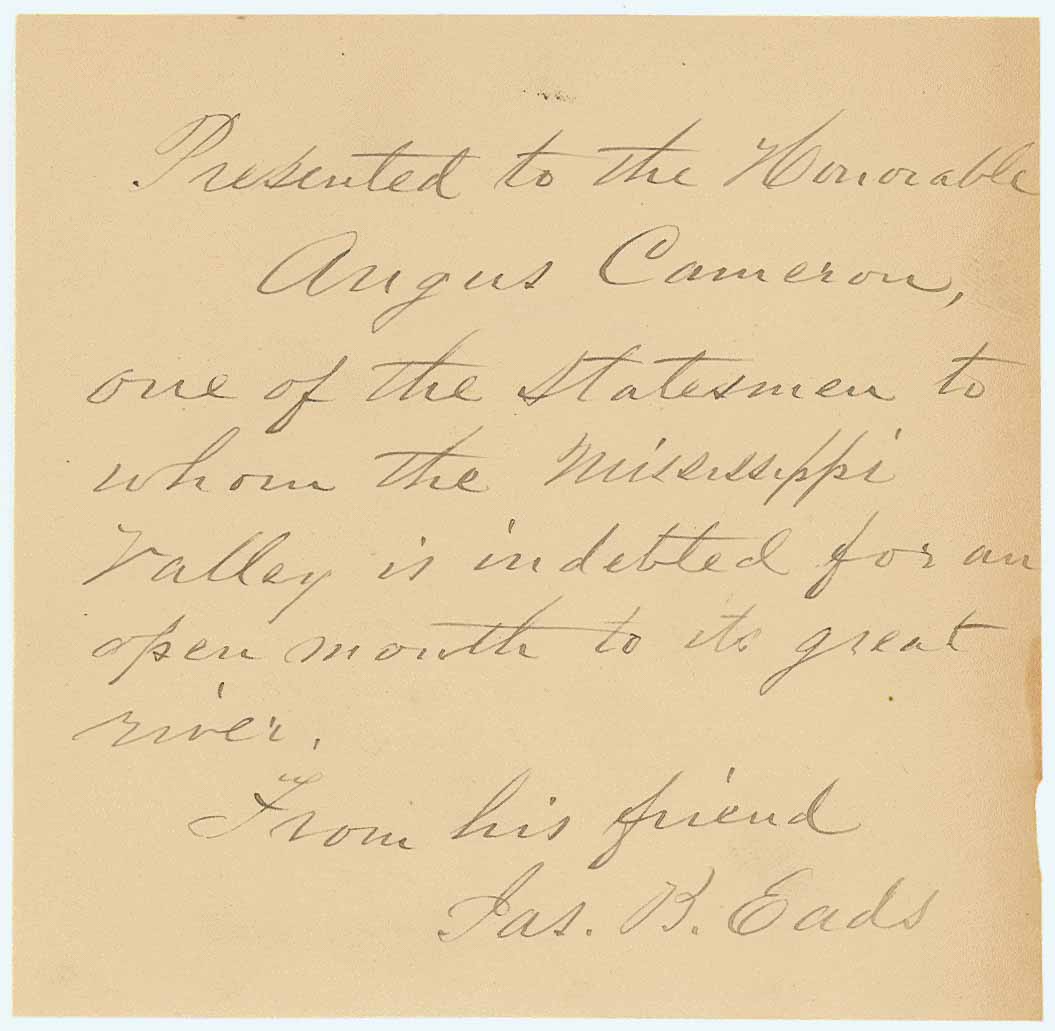 Presented to the Honorable
Angus Cameron,
one of the Statesmen to
whom the Mississippi
Valley is indebted for an
open mouth to its great
river.
From his friend
Jas. B. Eads